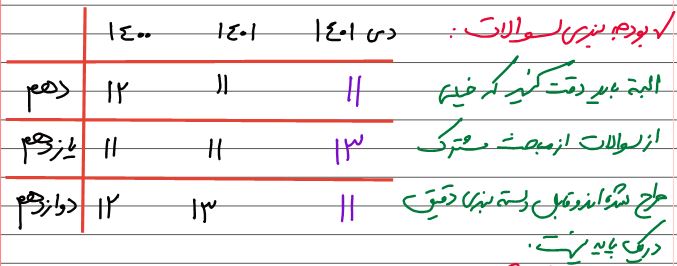 ✓ بودجه بندی سوالات : دی ۱۴۰۱ ۱۴۰۱ ۱۴۰۰
البته باید دقت کنید که خیلی ۱۱ ۱۱ ۱۲ دهم
از سوالات از مباحث مشترک ۱۳ ۱۱ ۱۱ یازدهم
طراح شده اند و قابل دسته بندی دقیق ۱۱ ۱۳ ۱۲ دوازدهم
در یک پایه نیست.